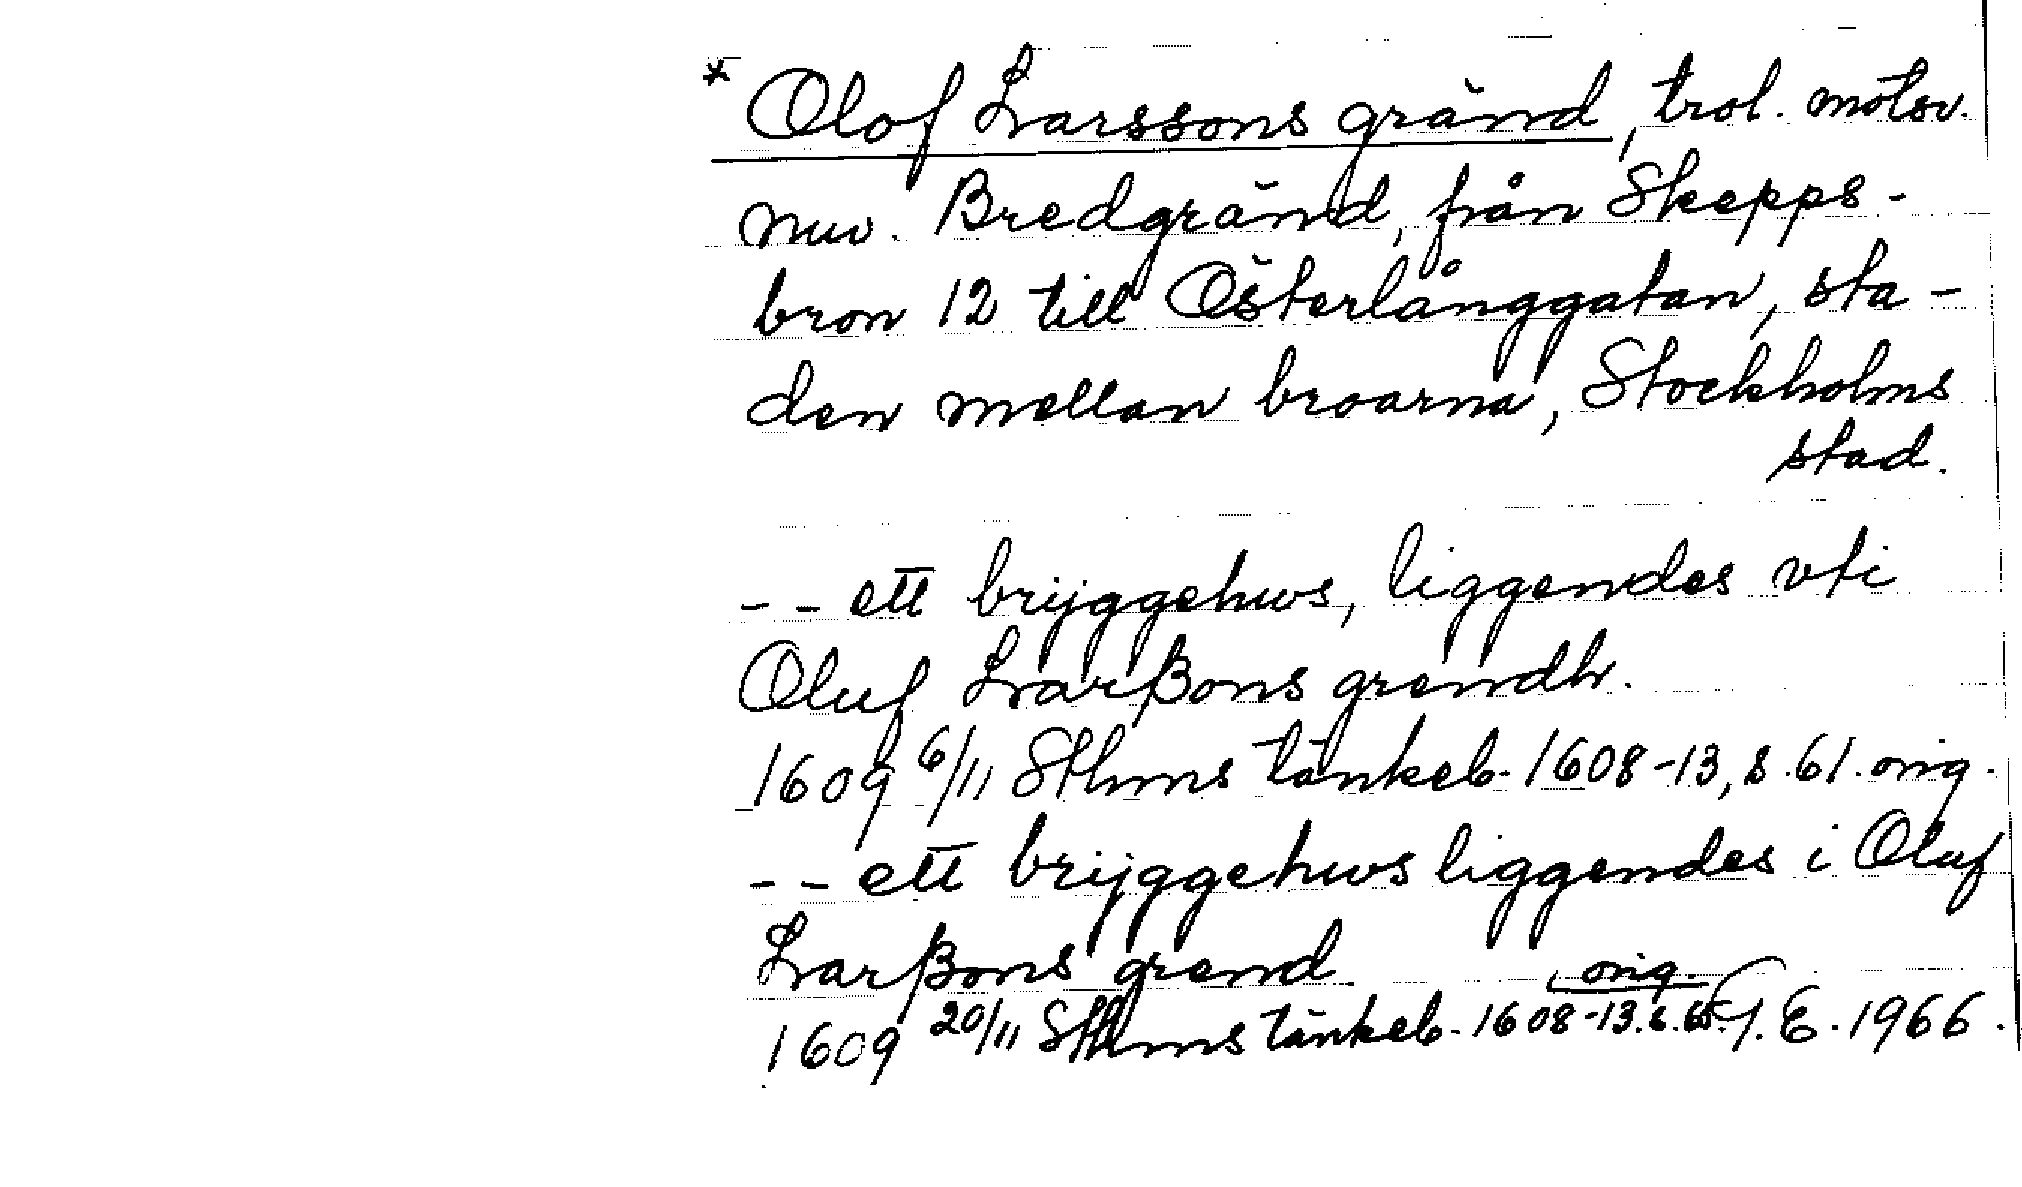 * Olof Larssons gränd, trol. motsv.
nuv. Bredgränd, från Skepps-
bron 12 till Österlånggatan, sta-
den mellan broarna, Stockholms
stad.
-- ett brijggehws, liggendes vti
Oluf Larßons grendh.
1609 6/11 Sthms tänkeb. 1608-13, s. 61. orig.
-- ett brijggehws liggendes i Oluf
Larßons grend. orig.
1609 20/11 Sthms tänkeb. 1608-13. s. 65. E. 1966.